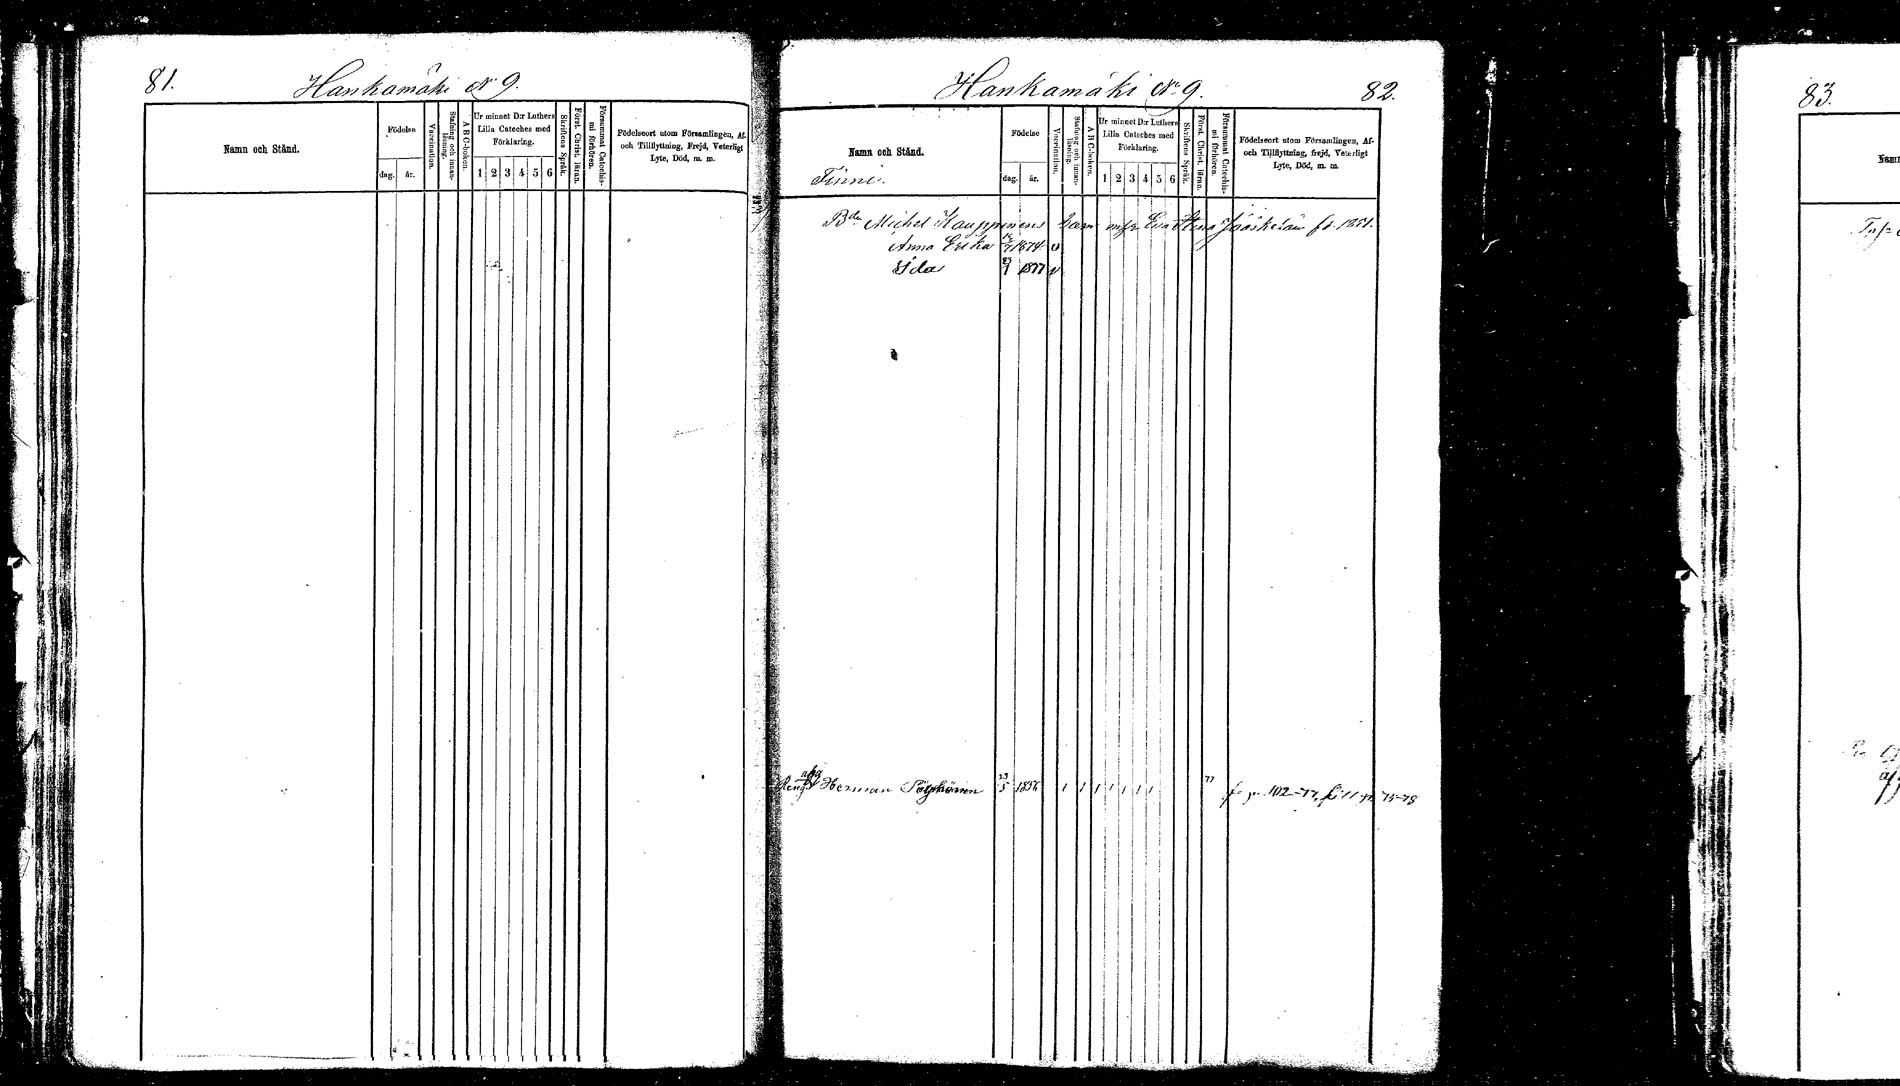 81.
Hankamäki No 9.
Namn och Stånd.
Födelse
dag.
år.
Vaccination.
Stafning och innan-
läsning.
A B C-boken.
Ur minnet D:r Luthers
Lilla Cateches med
Förklaring.
1 2 3 4 5 6
Skriftens Språk.
Först. Christ. läran.
Försummat Catechis-
mi förhören.
Födelseort utom Församlingen, Af-
och Tillflyttning, Frejd, Veterligt
Lyte, Död, m. m.
Hankamäki No 9.
82.
Namn och Stånd.
Finne.
Födelse
dag.
år.
Vaccination.
Stafning och innan-
läsning.
A B C-boken.
Ur minnet D:r Luthers
Lilla Cateches med
Förklaring.
1 2 3 4 5 6
Skriftens Språk.
Först. Christ. läran.
Försummat Catechis-
mi förhören.
Födelseort utom Församlingen, Af-
och Tillflyttning, frejd, Veterligt
Lyte, Död, m. m.
Bde Michel Kauppinens barn Eva Stina Jääskeläin 1851.
Anna Erika 1874 v
Ida 1877 v
Herman 77 102-77, 75-78
83.